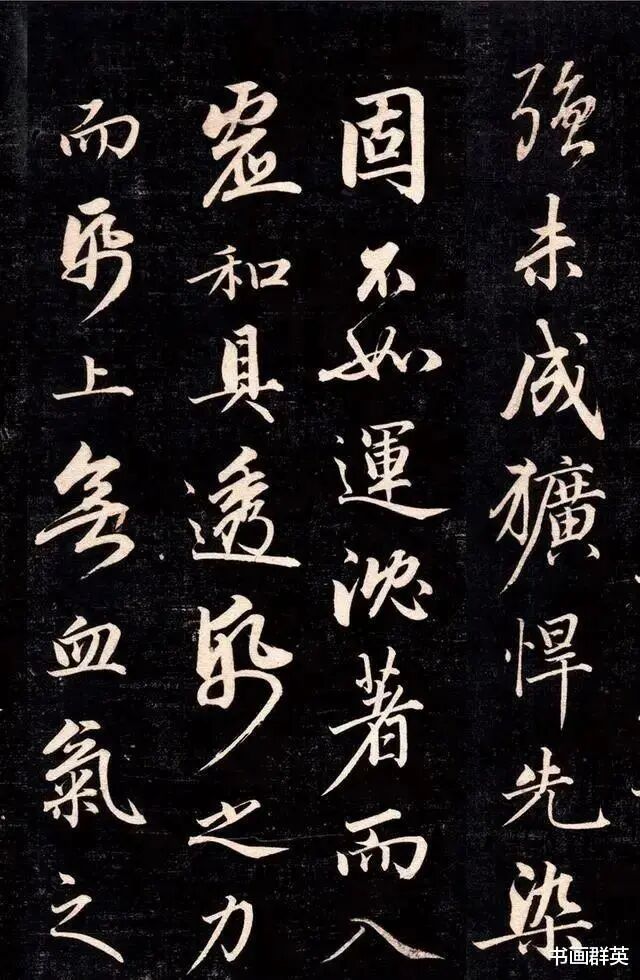 強未成獷悍先染
固不如運沈著而入
虛和具透帋之力
而帋上無血氣之
书画群英